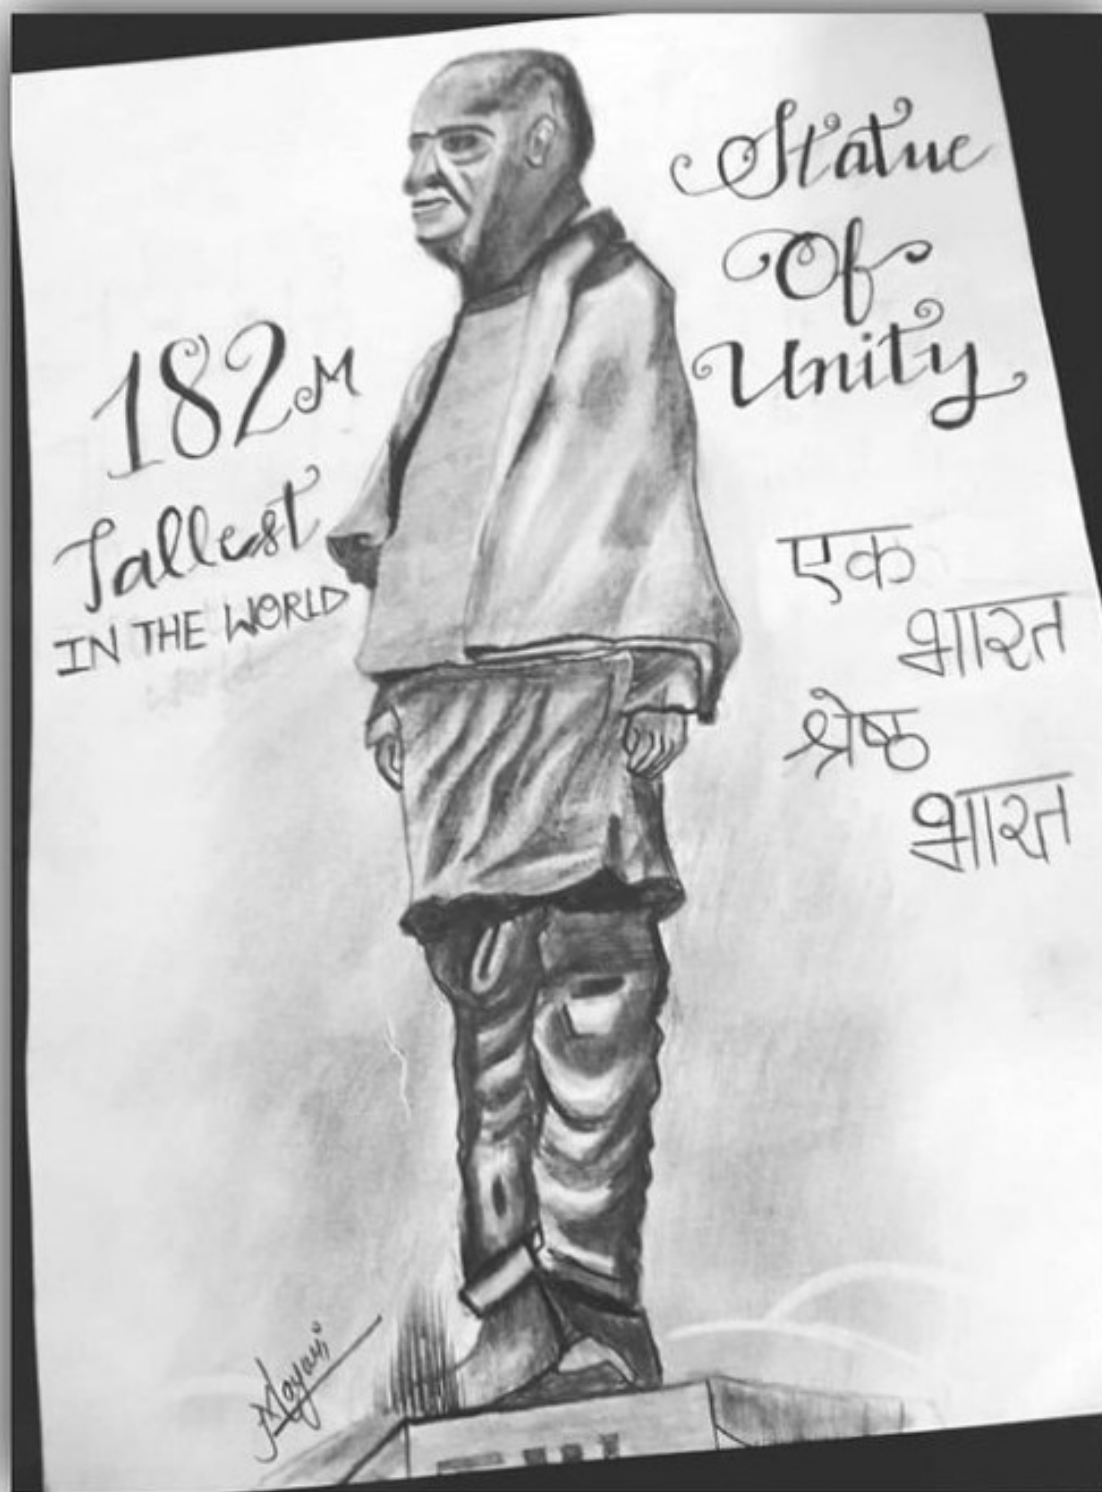 Statue
Of
Unity
182M
Tallest
IN THE WORLD
एक
भारत
श्रेष्ठ
भारत